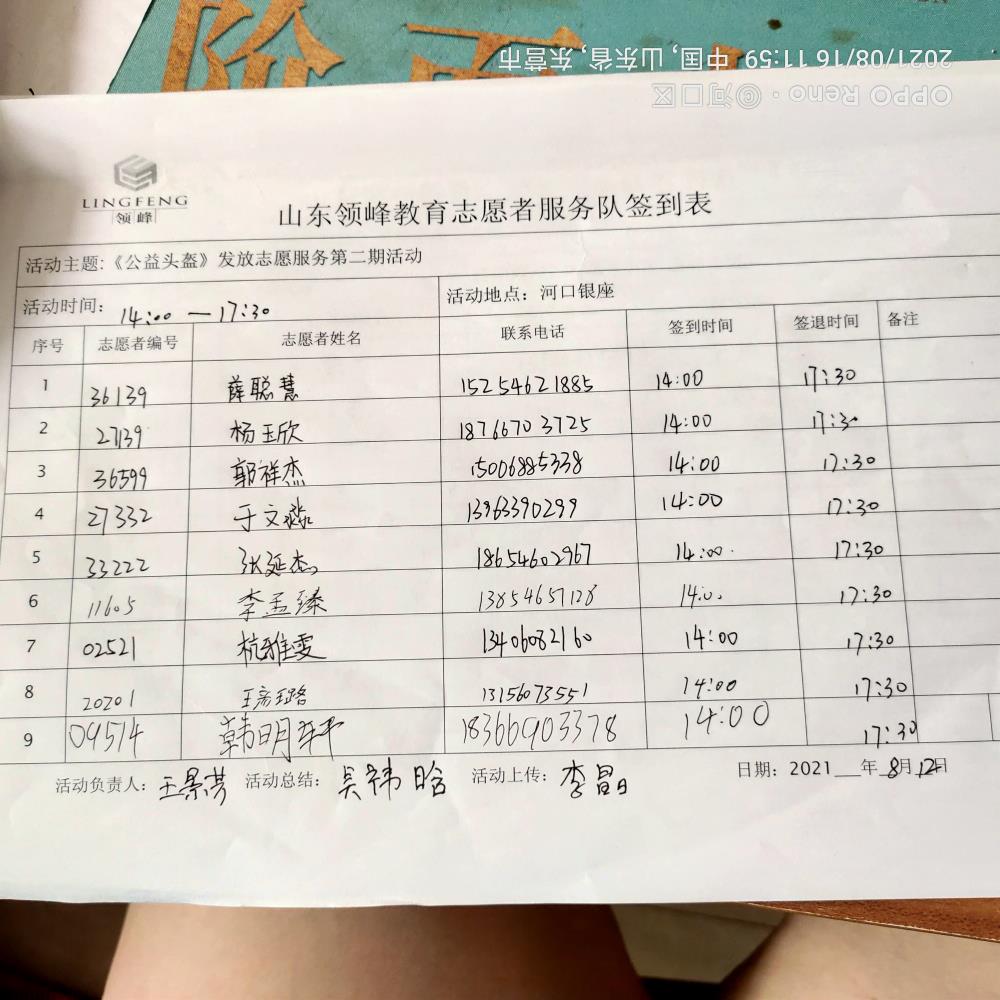 2021/08/16 11:59 中国, 山东省, 东营市
OPPO Reno · @河口区
LINGFENG
领峰
山东领峰教育志愿者服务队签到表
活动主题:《公益头盔》发放志愿服务第二期活动
活动时间: 14:00 — 17:30 活动地点: 河口银座
序号 志愿者编号 志愿者姓名 联系电话 签到时间 签退时间 备注
1 36139 薛聪慧 15254621885 14:00 17:30
2 27139 杨玉欣 18766703725 14:00 17:30
3 36599 郭祥杰 15006885338 14:00 17:30
4 27332 于文淼 13963390299 14:00 17:30
5 33222 张延杰 18654602967 14:00 17:30
6 11605 李孟臻 13854657128 14:00 17:30
7 02521 杭雅雯 13406082160 14:00 17:30
8 20201 王 璐 13156073551 14:00 17:30
9 09514 韩明轩 18366903378 14:00 17:30
活动负责人: 王景芳 活动总结: 吴祎晗 活动上传: 李晶 日期: 2021 年 8月12日